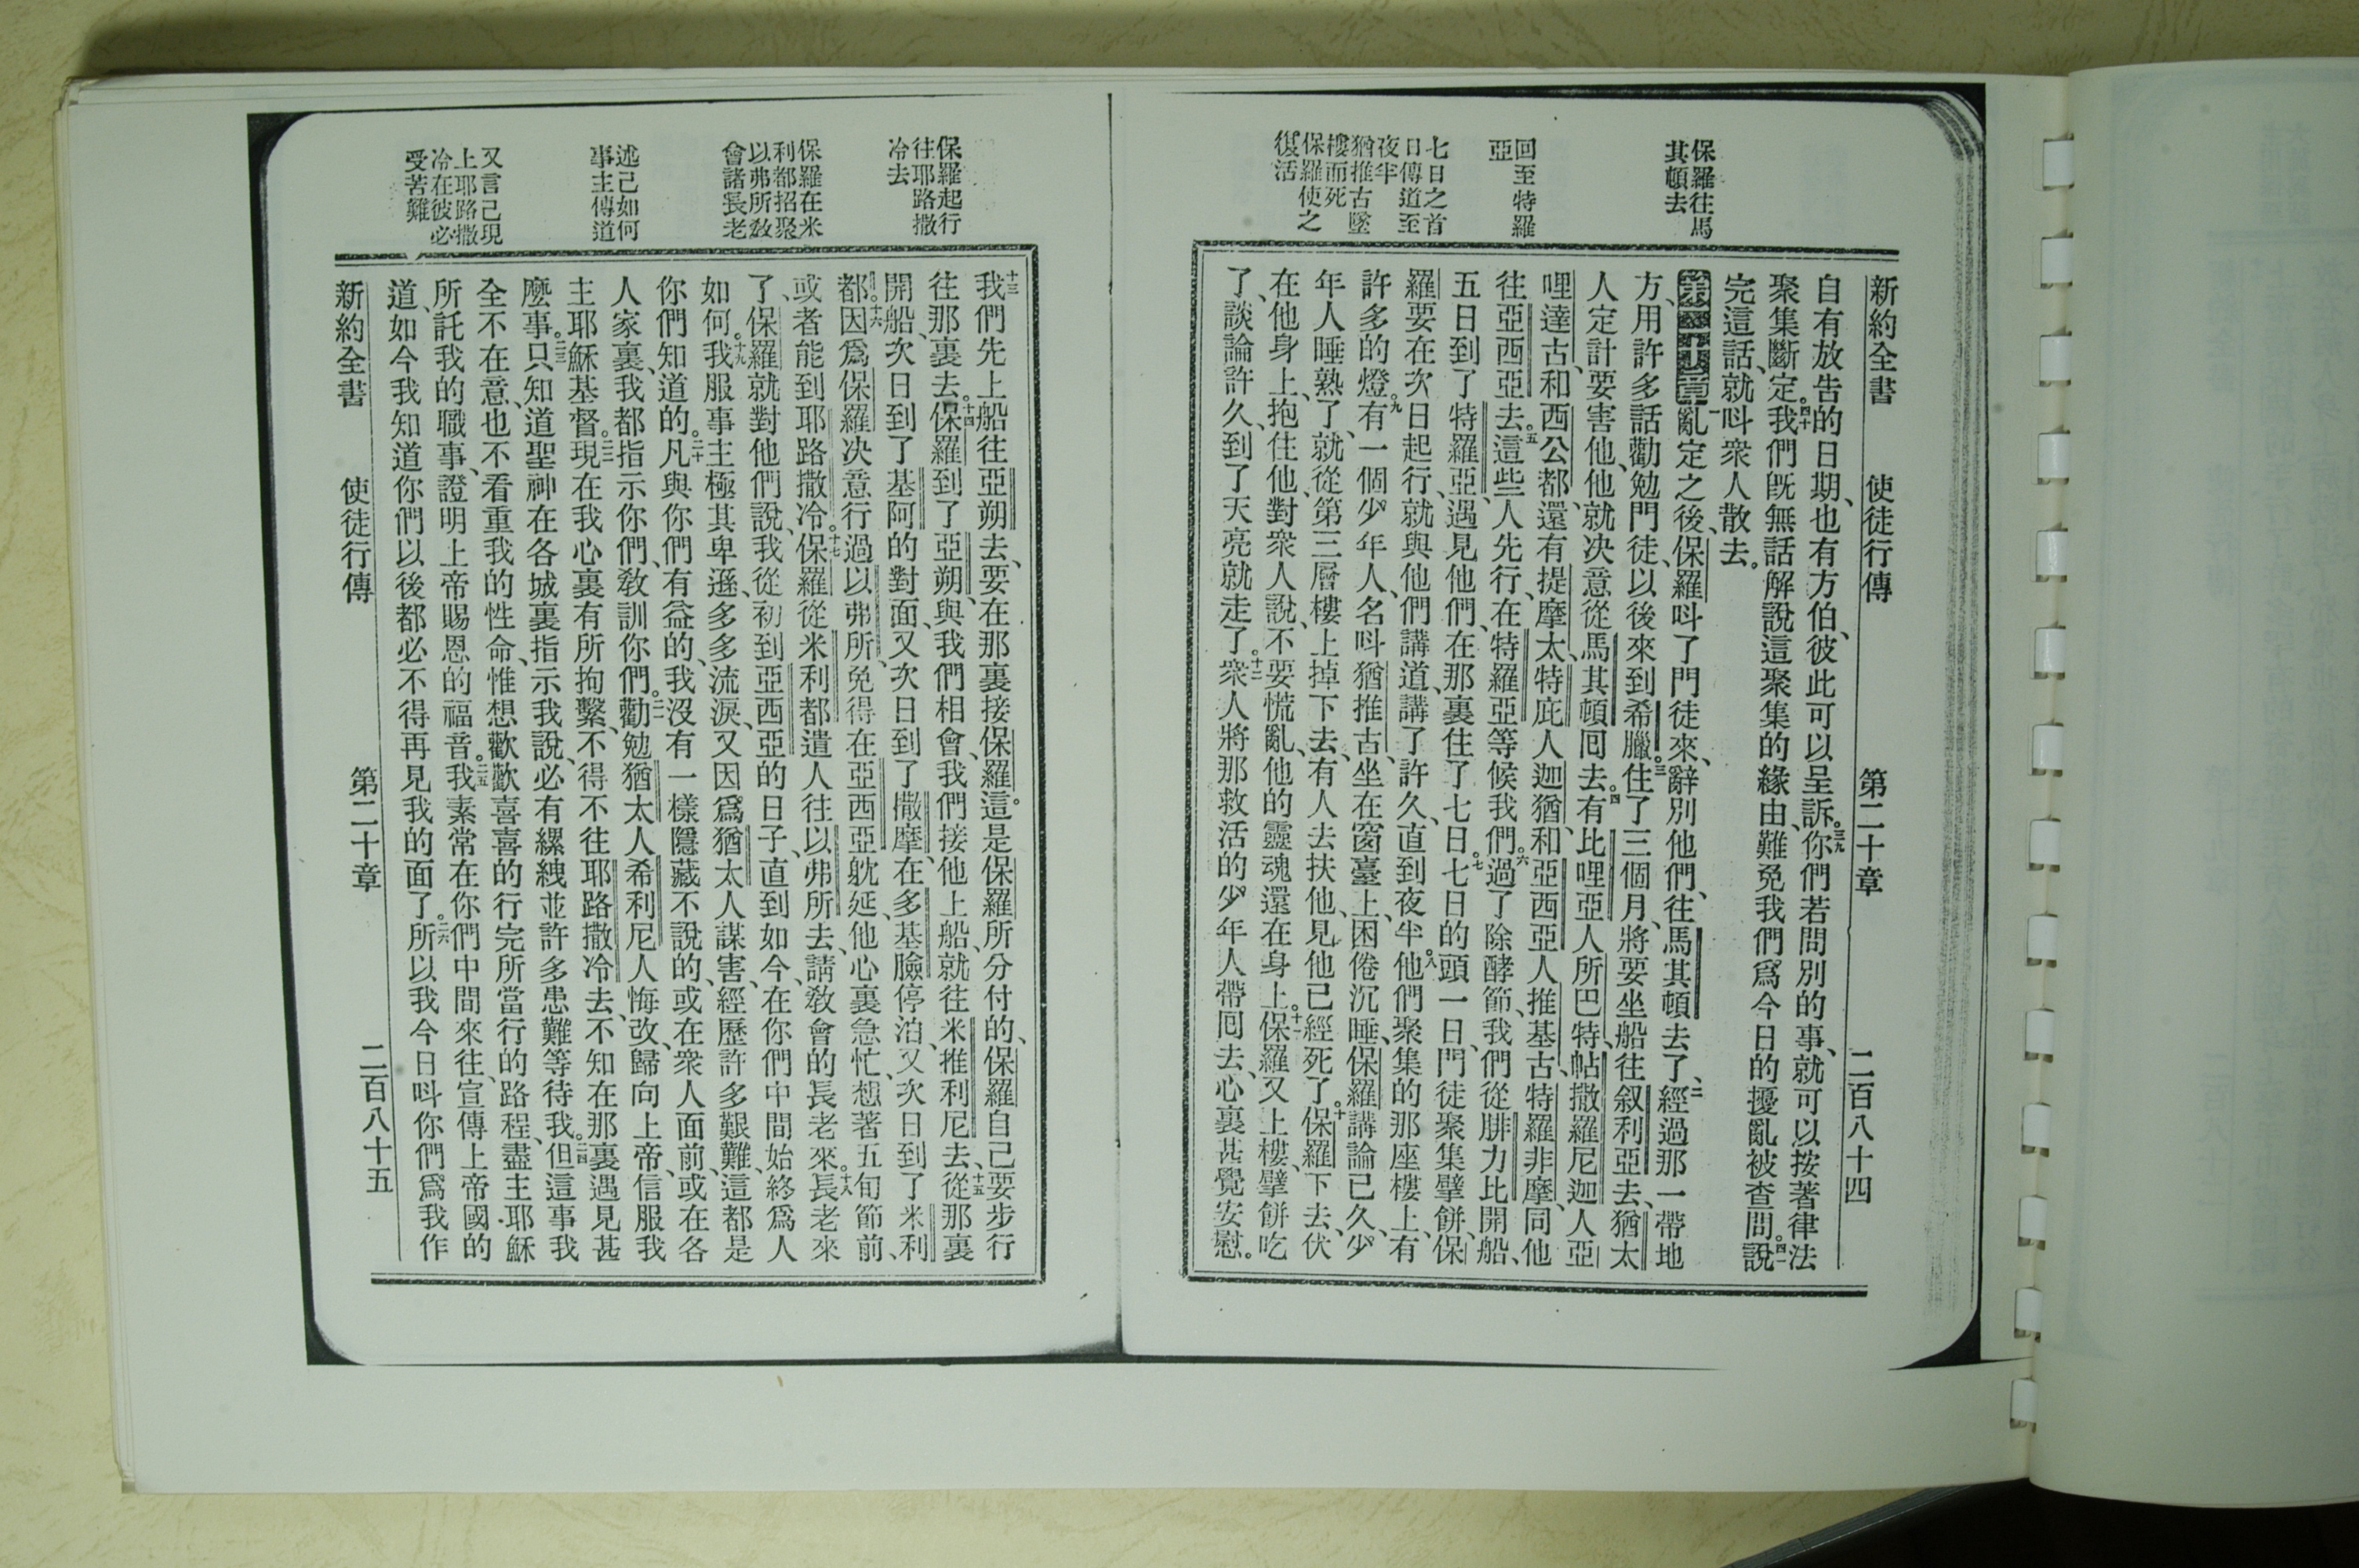 新約全書 使徒行傳 第二十章 二百八十四
保羅往馬
其頓去
回至特羅
亞
七日之首
日傳道至
夜半
猶推古墜
樓而死
保羅使之
復活
自有放告的日期、也有方伯、彼此可以呈訴。三九你們若問別的事、就可以按著律法
聚集斷定。四十我們旣無話解說這聚集的緣由、難免我們爲今日的擾亂被查問。四一說
完這話、就呌衆人散去。
第二十章一亂定之後、保羅呌了門徒來、辭別他們、往馬其頓去了、二經過那一帶地
方、用許多話勸勉門徒、以後來到希臘。三住了三個月、將要坐船往叙利亞去、猶太
人定計要害他、他就决意從馬其頓囘去。四有比哩亞人所巴特、帖撒羅尼迦人亞
哩達古、和西公都、還有提摩太、特庇人迦猶、和亞西亞人推基古、特羅非摩、同他
往亞西亞去。五這些人先行、在特羅亞等候我們。六過了除酵節、我們從腓力比開船、
五日到了特羅亞、遇見他們、在那裏住了七日。七七日的頭一日、門徒聚集擘餅、保
羅要在次日起行、就與他們講道、講了許久、直到夜半。八他們聚集的那座樓上、有
許多的燈。九有一個少年人、名呌猶推古、坐在窗臺上、困倦沉睡、保羅講論已久、少
年人睡熟了、就從第三層樓上掉下去、有人去扶他、見他已經死了。十保羅下去、伏
在他身上、抱住他、對衆人說、不要慌亂、他的靈魂還在身上。十一保羅又上樓、擘餅吃
了、談論許久、到了天亮就走了。十二衆人將那救活的少年人帶囘去、心裏甚覺安慰。
保羅起行
往耶路撒
冷去
保羅在米
利都招聚
以弗所敎
會諸長老
述己如何
事主傳道
又言己現
上耶路撒
冷在彼必
受苦難
十三我們先上船往亞朔去、要在那裏接保羅。這是保羅所分付的、保羅自己要步行
往那裏去。十四保羅到了亞朔、與我們相會、我們接他上船、就往米推利尼去、十五從那裏
開船、次日到了基阿的對面、又次日到了撒摩、在多基臉停泊、又次日到了米利
都。十六因爲保羅决意行過以弗所、免得在亞西亞躭延、他心裏急忙、想著五旬節前、
或者能到耶路撒冷。十七保羅從米利都遣人往以弗所去、請敎會的長老來。十八長老來
了、保羅就對他們說、我從初到亞西亞的日子、直到如今、在你們中間始終爲人
如何。十九我服事主極其卑遜、多多流淚、又因爲猶太人謀害、經歷許多艱難、這都是
你們知道的。二十凡與你們有益的、我沒有一樣隱藏不說的、或在衆人面前、或在各
人家裏、我都指示你們、敎訓你們。二一勸勉猶太人希利尼人悔改、歸向上帝、信服我
主耶穌基督。二二現在我心裏有所拘繫、不得不往耶路撒冷去、不知在那裏遇見甚
麽事。二三只知道聖神在各城裏指示我說、必有縲絏並許多患難等待我。二四但這事我
全不在意、也不看重我的性命、惟想歡歡喜喜的行完所當行的路程、盡主耶穌
所託我的職事、證明上帝賜恩的福音。二五我素常在你們中間來往、宣傳上帝國的
道、如今我知道你們以後都必不得再見我的面了。二六所以我今日呌你們爲我作
新約全書 使徒行傳 第二十章 二百八十五